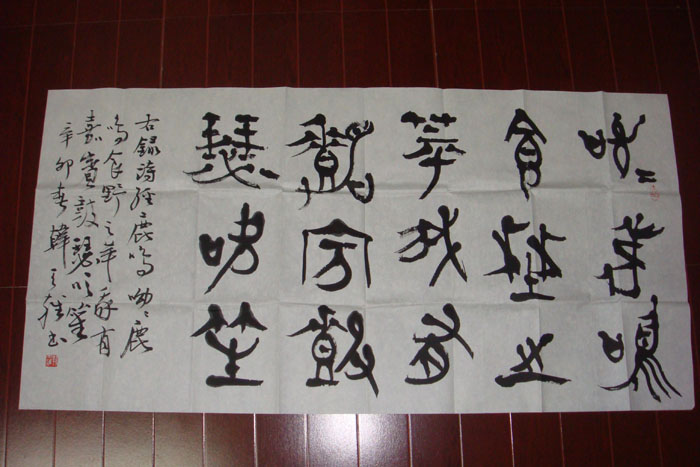 呦〻鹿鳴
食野之
苹我有
嘉賓鼓
瑟吹笙
右録詩經鹿鳴呦〻鹿
鳴食野之苹我有
嘉賓鼓瑟吹笙
辛卯春韓天雍书